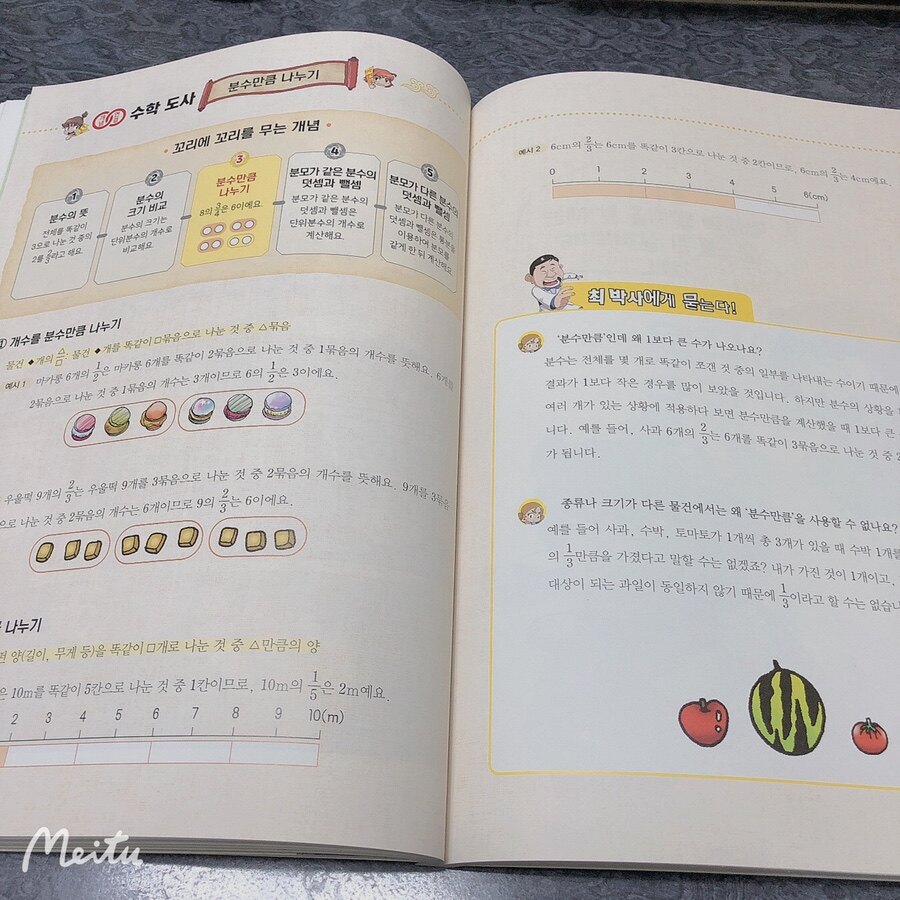 수학 도사
분수만큼 나누기
꼬리에 꼬리를 무는 개념
1
분수의 뜻
전체를 똑같이
3으로 나눈 것 중의
2를 2/3라고 해요.
2
분수의
크기 비교
분수의 크기는
단위분수의 개수로
비교해요.
3
분수만큼
나누기
8의 3/4은 6이에요.
4
분모가 같은 분수의
덧셈과 뺄셈
분모가 같은 분수의
덧셈과 뺄셈은
단위분수의 개수로
계산해요.
5
분모가 다른 분수의
덧셈과 뺄셈
분모가 다른 분수의
덧셈과 뺄셈은 통분을
이용하여 분모를
같게 한 뒤 계산해요.
① 개수를 분수만큼 나누기
물건 ◆개의 △/□: 물건 ◆개를 똑같이 □묶음으로 나눈 것 중 △묶음
예시 1 마카롱 6개의 1/2은 마카롱 6개를 똑같이 2묶음으로 나눈 것 중 1묶음의 개수를 뜻해요. 6개를
2묶음으로 나눈 것 중 1묶음의 개수는 3개이므로 6의 1/2은 3이에요.
우울떡 9개의 2/3는 우울떡 9개를 3묶음으로 나눈 것 중 2묶음의 개수를 뜻해요. 9개를 3묶음
으로 나눈 것 중 2묶음의 개수는 6개이므로 9의 2/3는 6이에요.
나누기
양(길이, 무게 등)을 똑같이 □개로 나눈 것 중 △만큼의 양
은 10m를 똑같이 5칸으로 나눈 것 중 1칸이므로, 10m의 1/5은 2m예요.
2 3 4 5 6 7 8 9 10(m)
예시 2 6cm의 2/3는 6cm를 똑같이 3칸으로 나눈 것 중 2칸이므로, 6cm의 2/3는 4cm예요.
0 1 2 3 4 5 6(cm)
최 박사에게 묻는다!
'분수만큼'인데 왜 1보다 큰 수가 나오나요?
분수는 전체를 몇 개로 똑같이 쪼갠 것 중의 일부를 나타내는 수이기 때문에
결과가 1보다 작은 경우를 많이 보았을 것입니다. 하지만 분수의 상황을
여러 개가 있는 상황에 적용하다 보면 분수만큼을 계산했을 때 1보다 큰
니다. 예를 들어, 사과 6개의 2/3는 6개를 똑같이 3묶음으로 나눈 것 중 2
가 됩니다.
종류나 크기가 다른 물건에서는 왜 '분수만큼'을 사용할 수 없나요?
예를 들어 사과, 수박, 토마토가 1개씩 총 3개가 있을 때 수박 1개를
의 1/3만큼을 가졌다고 말할 수는 없겠죠? 내가 가진 것이 1개이고,
대상이 되는 과일이 동일하지 않기 때문에 1/3이라고 할 수는 없습니
Meitu